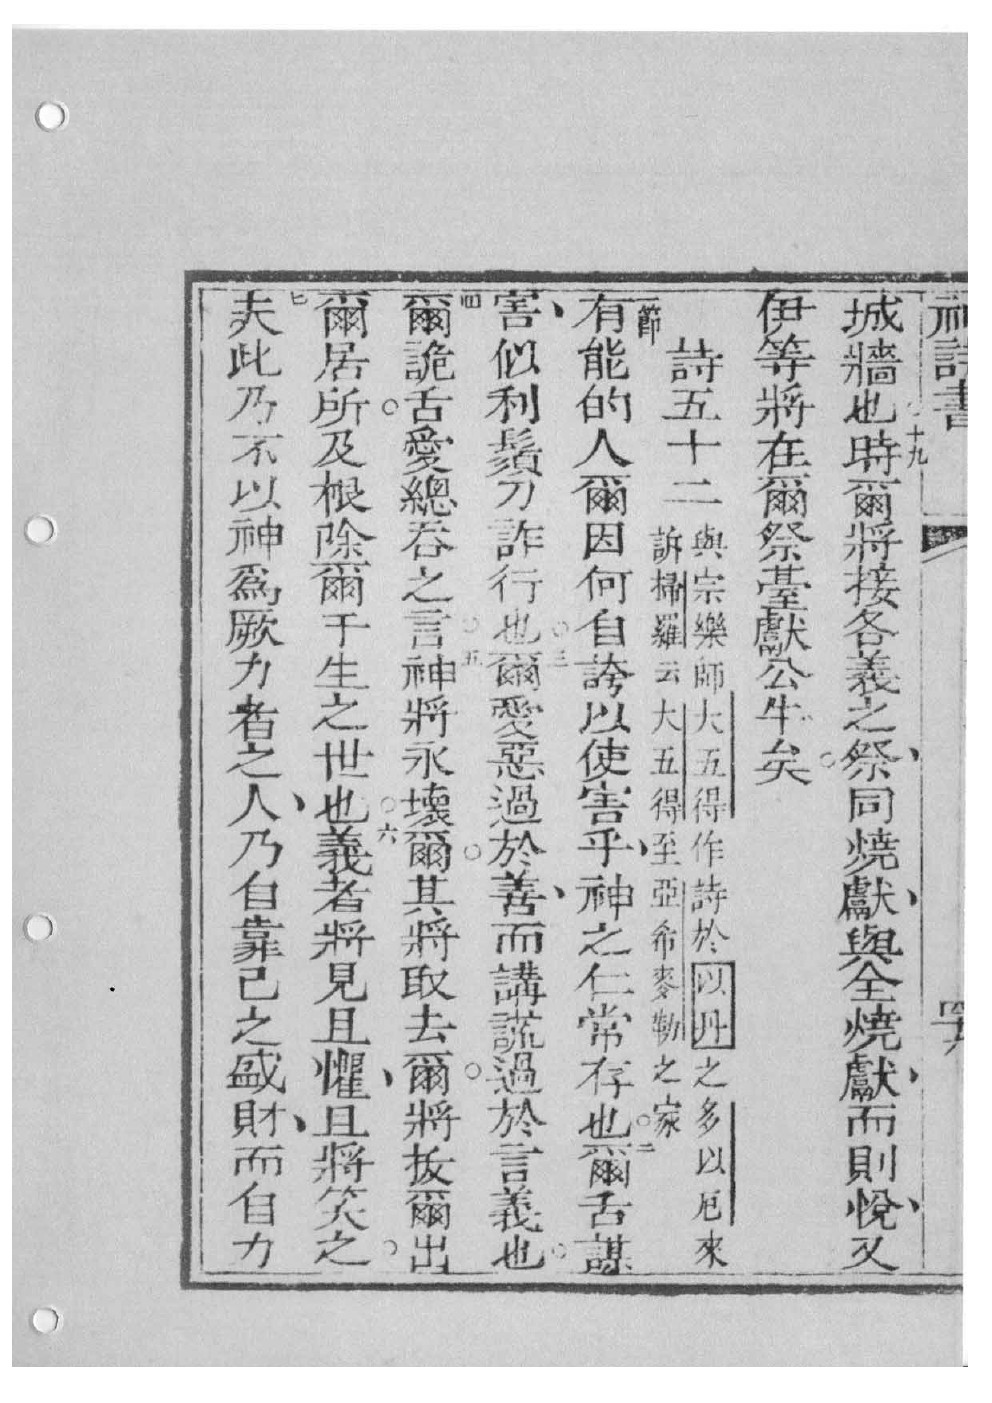 神詩書
城牆也十九時爾將接各義之祭、同燒獻、與全燒獻、而則悅、又
伊等將在爾祭臺獻公牛矣。
詩五十二
與宗樂師大五得作詩於以丹之多以厄來
訴掃羅云大五得至亞希麥勒之家
一節有能的人爾因何自誇以使害乎、神之仁常存也。二爾舌謀
害、似利鬚刀詐行也。三爾愛惡過於善、而講謊過於言義也。
四爾詭舌愛總吞之言。五神將永壞爾其將取去爾將拔爾出
爾居所及根除爾于生之世也。六義者將見且懼、且將笑之。
七夫此乃不以神為厥力者之人、乃自靠己之盛財、而自力